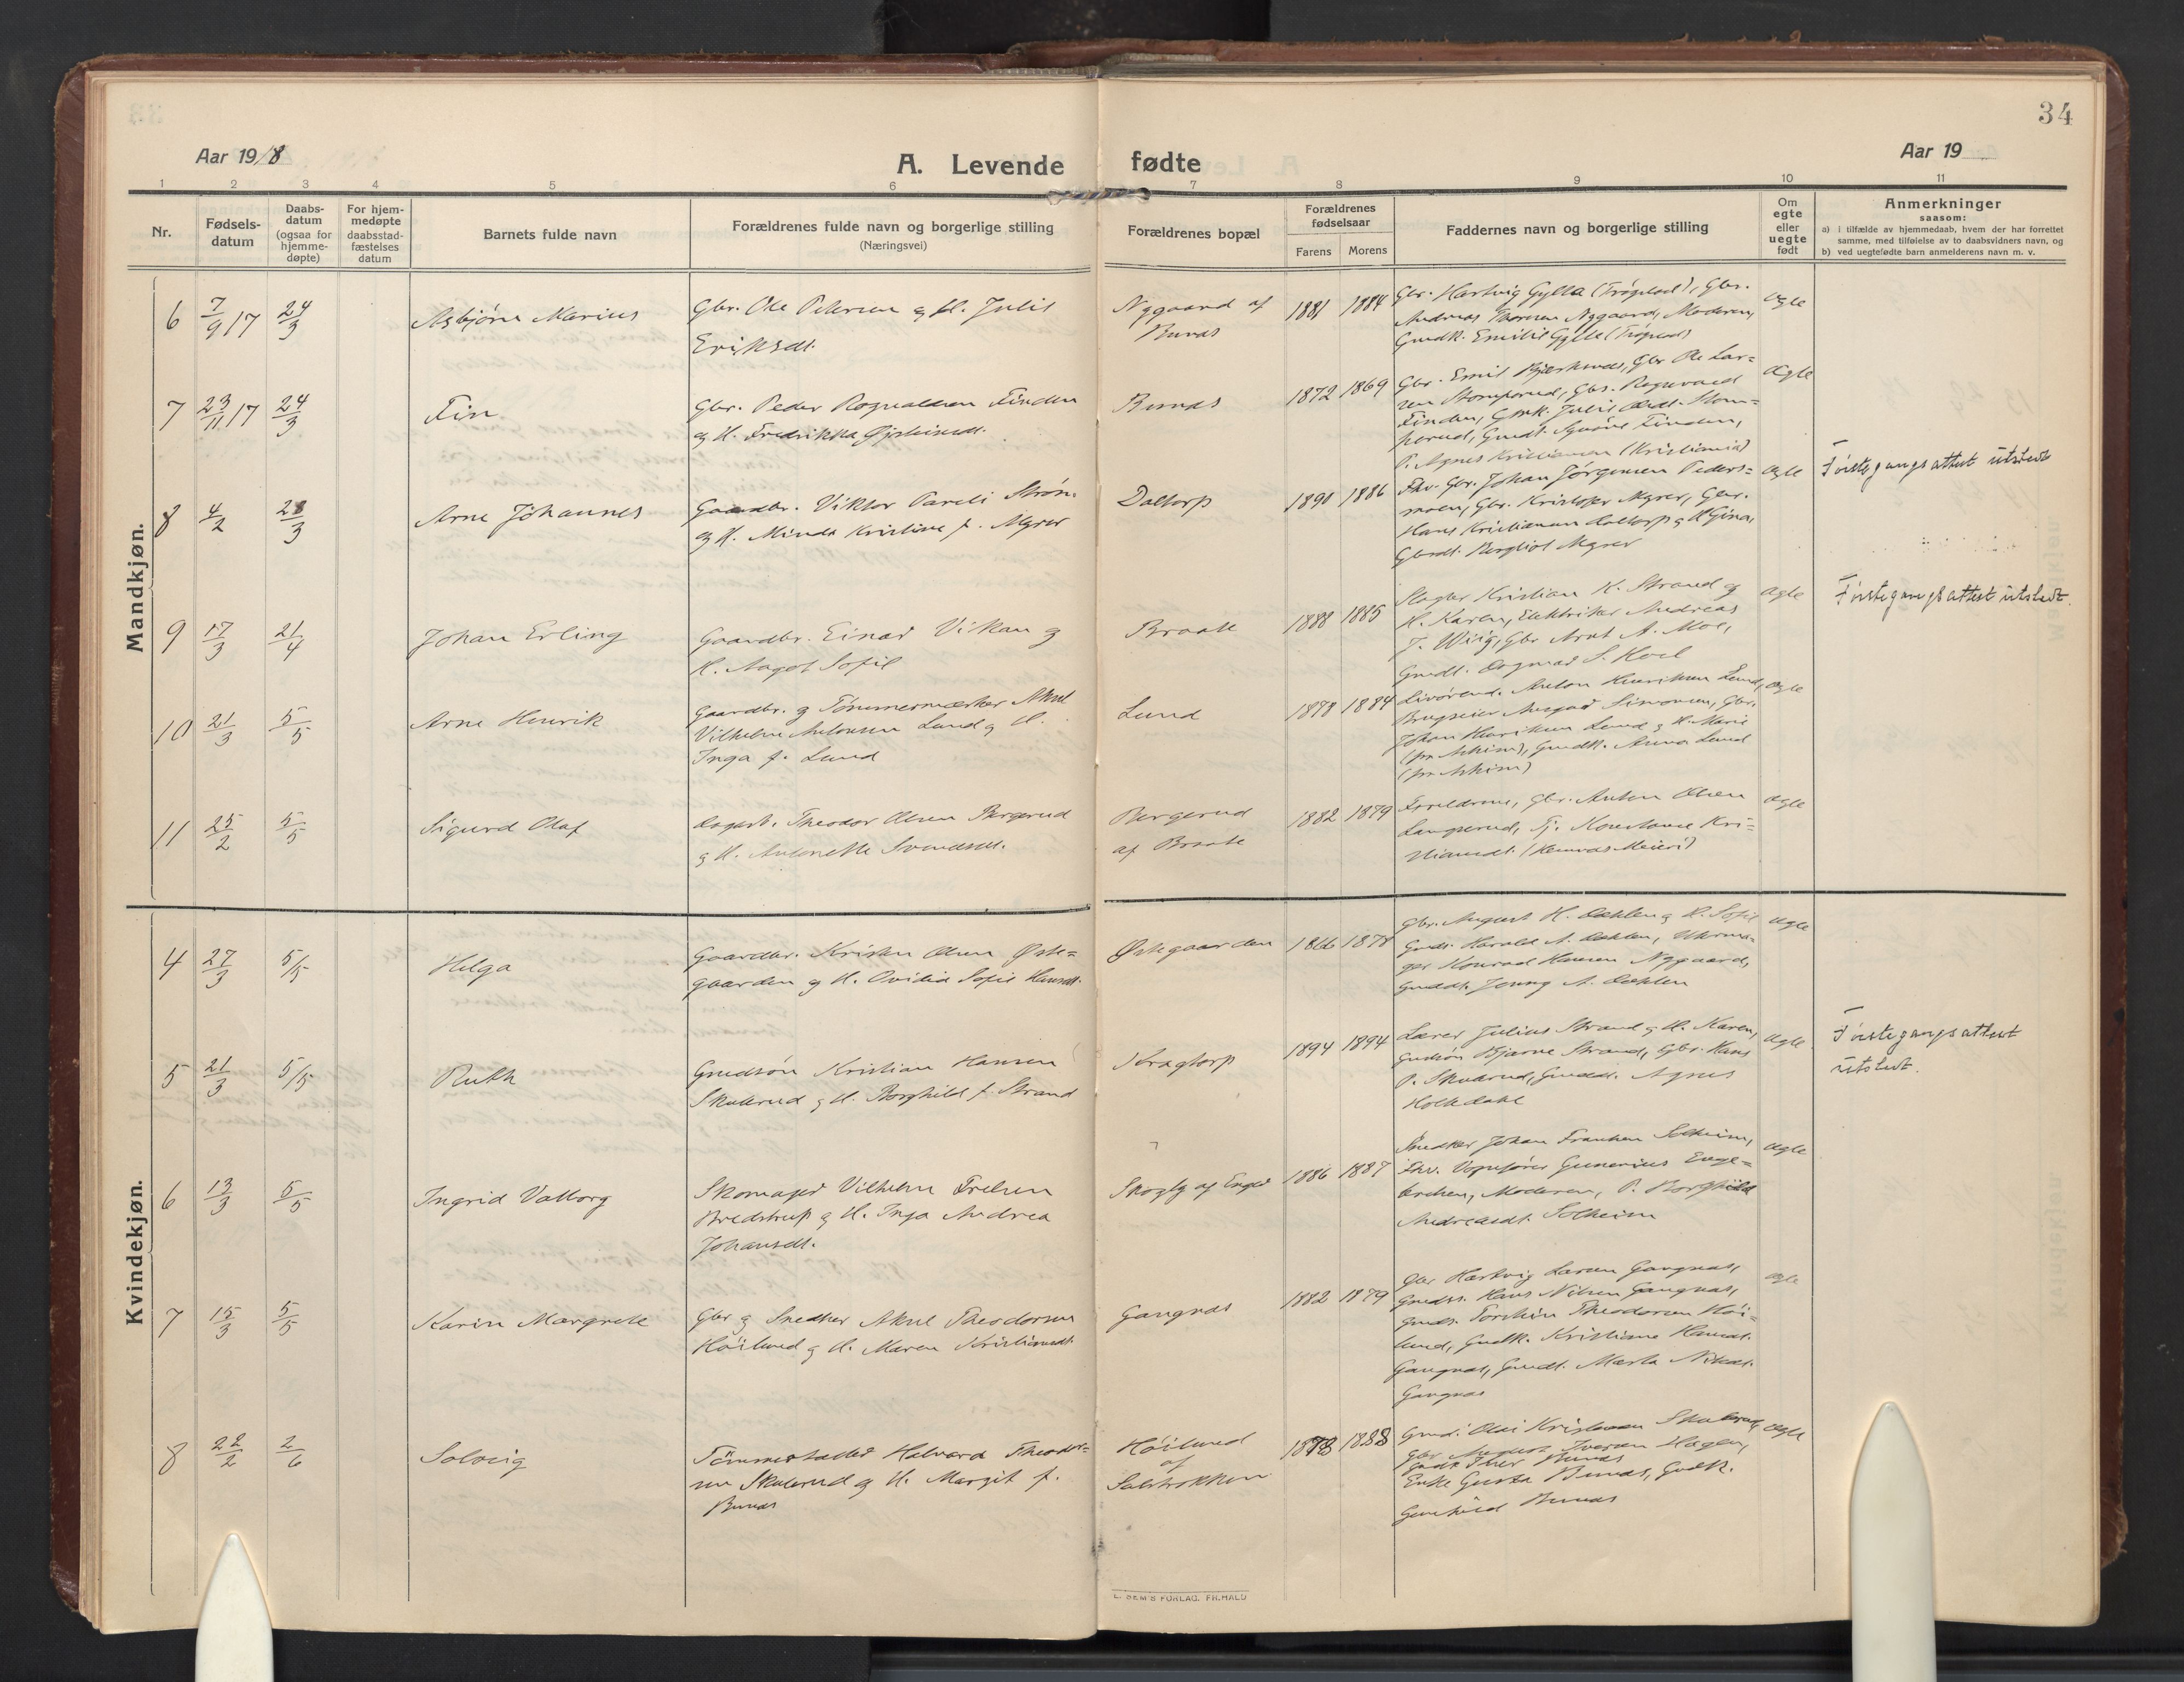 34
Aar 1918
A. Levende fødte
Aar 19
1 2 3 4 5 6 7 8 9 10 11
Nr.
Fødsels-
datum
Daabs-
datum
(ogsaa for
hjemme-
døpte)
For hjem-
medøpte
daabsstad-
fæstelses
datum
Barnets fulde navn
Forældrenes fulde navn og borgerlige stilling
(Næringsvei)
Forældrenes bopæl
Forældrenes
fødselsaar
Farens Morens
Faddernes navn og borgerlige stilling
Om
egte
eller
uegte
født
Anmerkninger
saasom:
a) I tilfælde av hjemmedaab, hvem der har forrettet
samme, med tilføielse av to daabsvidners navn, og
b) ved uegtefødte barn anmelderens navn m. v.
Mandkjøn.
6 7/9 17 24/3 Asbjørn Marius
Gbr. Ole Petersen og H. Julie
Eriksdt.
Nygaard af
Bunas
1881 1884
Gbr. Hartvig Gylla (Trøgstad), Gbr.
Andreas Thoresen Nygaard, Moderen,
Gmdk. Emilie Gylle (Trøgstad)
Ægte
7 23/11 17 24/3 Fin
Gbr. Peder Rognaldsen Finden
og H. Fredrikka Øisteinsdt.
Bunas
1872 1869
Gbr. Emil Bjerknes, Gbr Ole Lar=
sen Stomperud, Gbs. Rognvald
Finden, Gmk. Julie Olsdt. Stom=
perud, Gmdt. Synøve Finden,
P. Agnes Kristiansen (Kristiania)
Ægte
8 4/2 28/3 Arne Johannes
Gaardbr. Viktor Pareli Strøm
og H. Minda Kristine f. Myrer
Daltorp
1890 1886
Fhv. Gbr. Johan Jørgensen Peders=
moen, Gbr. Kristofer Myrer, Gbr.
Hans Kristiansen Daltorp og H Gina,
Gbrdt. Bergliot Myrer
Ægte
Førstegangsattest utstedt
9 17/3 21/4 Johan Erling
Gaardbr. Einar Vikan og
H. Aagot Sofie
Braate
1888 1885
Slagter Kristian K. Strand og
H. Karen, Elektriker Andreas
J. Wiig, Gbr Arnt A. Moe,
Gmdt. Dagmar S. Hoel
Ægte
Førstegangsattest utstedt.
10 21/3 5/5 Arne Henrik
Gaardbr. og Tømmermerker Aksel
Vilhelm Antonsen Lund og H.
Inga f. Lund
Lund
1878 1884
Livørend. Anton Henriksen Lund,
Brugseier Ansgar Simonsen, Gbr.
Johan Henriksen Lund og H. Marie
(pr Askim), Gmdk. Anna Lund
(pr Askim)
Ægte
11 25/2 5/5 Sigurd Olaf
Dagarb. Theodor Olsen Bergerud
og H. Antonette Svendsdt.
Bergerud
af Braate
1882 1879
Forældrene, Gbr. Anton Olsen
Langerud, Tj. Konstanse Kri=
stiansdt. (Hemnæs Meieri)
Ægte
Kvindekjøn.
4 27/3 5/5 Helga
Gaardbr. Kristen Olsen Øste=
gaarden og H. Ovidia Sofie Hansdt.
Østegaarden
1866 1878
Gbr. August H. Dahlen og H. Sofie
Gmds. Harald A. Dahlen, Uhrma=
ger Konrad Hansen Nygaard,
Gmddt. Jenny A. Dahlen
Ægte
5 21/3 5/5 Ruth
Gmdsøn Kristian Hansen
Skulerud og H. Borghild f. Strand
Kragtorp
1894 1894
Lærer Julius Strand og H. Karen,
Gmdsøn Bjarne Strand, Gbr. Hans
P. Skulerud, Gmddt. Agnes
Holkedahl
Ægte
Førstegangsattest
utstedt.
6 13/3 5/5 Ingrid Valborg
Skomager Vilhelm Frelsen
Bredstrup og H. Inga Andrea
Johansdt.
Skogly af Enger
1886 1887
Snedker Johan Fransen Solheim,
Fhv. Vognfører Gunerius Enge=
bretsen, Moderen, P. Borghild
Andreasdt. Solheim
Ægte
7 15/3 5/5 Karin Margrete
Gbr og Snedker Aksel Theodorsen
Høilund og H. Maren Kristiansdt.
Gangnæs
1882 1879
Gbr Hartvig Larsen Gangnæs,
Gmdss. Hans Nilsen Gangnæs,
Gmds. Torstein Theodorsen Høi=
lund, Gmdk. Kristiane Hansdt.
Gangnæs, Gmdt. Marta Nilsdt.
Gangnæs
Ægte
8 22/2 2/6 Solveig
Tømmerstader Halvard Theodor=
sen Skulerud og H. Margit f.
Bunæs
Høilund
af
Solstrokken
1878 1888
Gmd. Olai Kristiansen Skulerud,
Gbr Iversen Hagen,
Bunæs
Enke Gusta Bunæs, Gmdk.
Gunhild Bunæs
Ægte
E. SEM'S FORLAG. FR.HALD